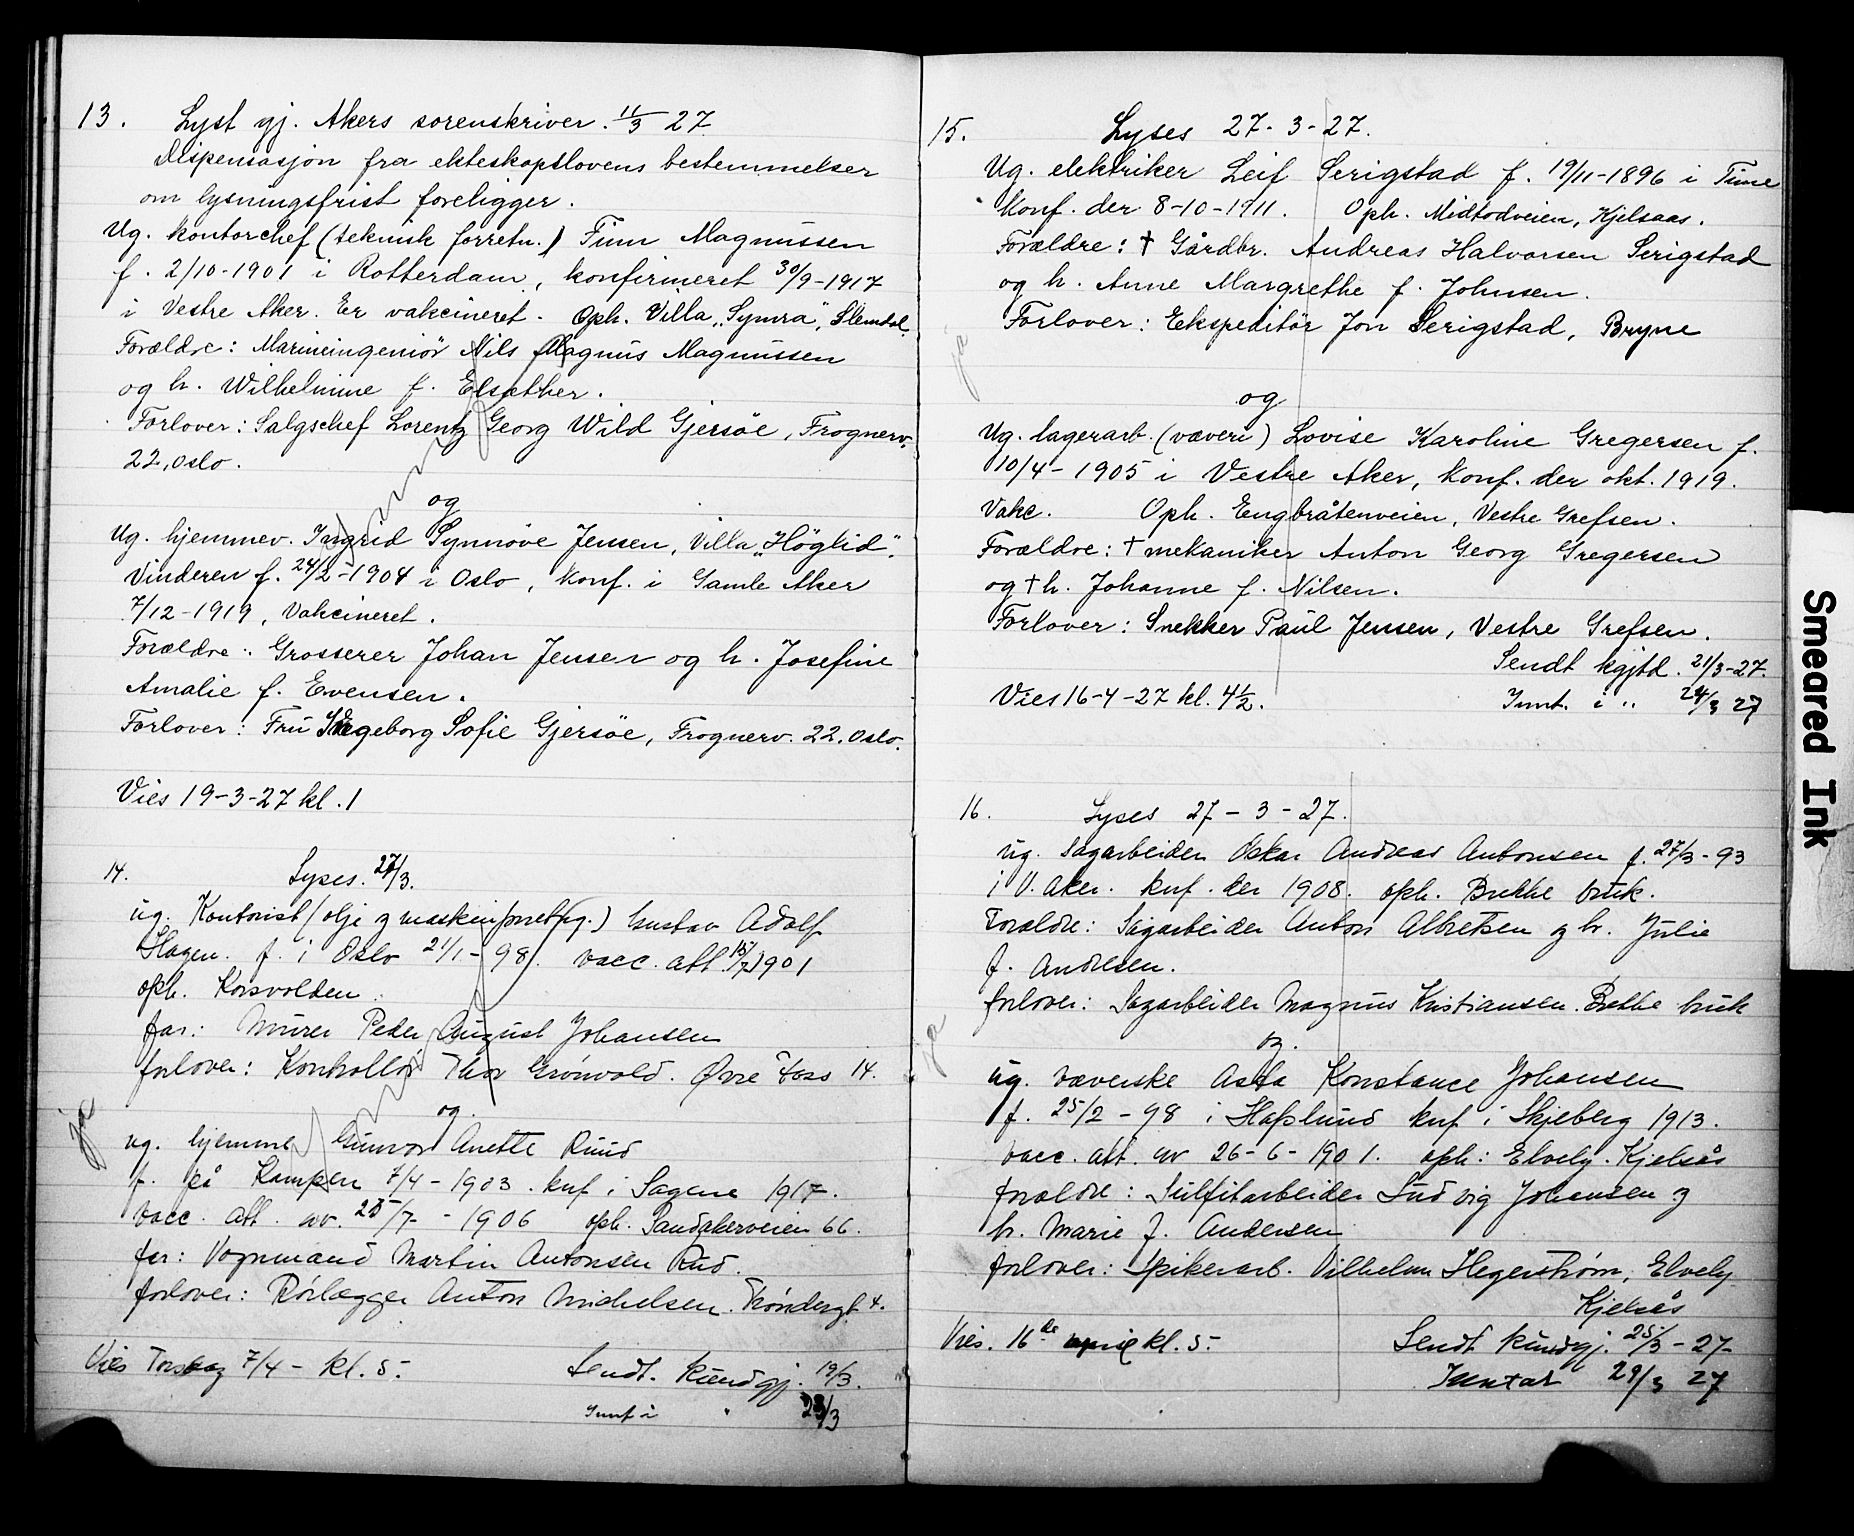 13. Lyst gj. Akers sorenskriver. 11/3 27
Dispensasjon fra ekteskapslovens bestemmelser
om lysningsfrist foreligger.
Ug. kontorchef (teknisk forretn.) Finn Magnussen
f. 2/10-1901 i Rotterdam, konfirmeret 30/9-1917
i Vestre Aker. Er vakcineret. Oph. Villa „Symra", Slemdal.
Forældre: Marineingeniør Nils Magnus Magnussen
og h. Wilhelmine f. Elsæther.
Forlover: Salgschef Lorentz Georg Wild Gjersøe, Frognerv.
22, Oslo.
og
Ug. hjemmev. Ingrid Synnøve Jensen, Villa „Höglid",
Vinderen f. 24/2-1904 i Oslo, konf. i Gamle Aker
7/12-1919, Vakcineret.
Forældre: Grosserer Johan Jensen og h. Josefine
Amalie f. Evensen.
Forlover: Fru Ingeborg Sofie Gjersøe, Frognerv. 22. Oslo.
Vies 19-3-27 kl. 1
14. Lyses. 27/3.
ug. Kontorist (olje g maskinforretng.) Gustav Adolf
Hagen. f. i Oslo 21/1-98. vacc. att. 15/7 1901
oph. Korsvolden.
far: Murer Peder August Johansen
forlover: Kontrollør Thor Grønvold. Øvre Foss 14.
og.
ja
ug. hjemme Gunvor Anette Ruud
f. på Kampen 7/4-1903. knf i Sagene 1917.
vacc. att. av. 25/7-1906 oph. Sandakerveien 66.
far: Vognmand Martin Antonsen Rud.
forlover: Rørlægger Anton Michelsen. Trøndergt 4.
Vies Torsdag 7/4 - kl. 5.
Sendt. kundgj. 19/3.
Innt i " 23/3
15. Lyses 27-3-27.
Ug. elektriker Leif Serigstad f. 19/11-1896 i Time
Konf. der 8-10-1911. Oph. Midtodveien, Kjelsaas.
Forældre: † Gårdbr. Andreas Halvorsen Serigstad
og h. Anne Margrethe f. Johnsen.
Forlover: Ekspeditør Jon Serigstad, Bryne
ja
og
Ug. lagerarb. (væveri) Lovise Karoline Gregersen f.
10/4-1905 i Vestre Aker, Konf. der okt. 1919.
Vakc. Oph. Engbråtenveien, Vestre Grefsen.
Forældre: † mekaniker Anton Georg Gregersen
og † h. Johanne f. Nilsen.
Forlover: Snekker Paul Jensen, Vestre Grefsen.
Sendt kgjtd. 21/3-27.
Vies 16-4-27 kl. 4½.
Innt. i " 24/3 27
16. Lyses 27-3-27.
ug. Sagarbeider Oskar Andreas Antonsen f. 27/3-93
i V. Aker. knf. der 1908. oph. Brekke bruk.
Foraldre: Sagarbeider Anton Albretsen g h. Julie
f. Andresen.
forlover: Sagarbeider Magnus Kristiansen. Brekke bruk
ja
og.
ug. væverske Asta Konstance Johansen
f. 25/2-98 i Hafslund knf i Skjeberg 1913.
vacc. att. av 26-6-1901. oph: Elvely. Kjelsås
forældre: Sulfitarbeider Ludvig Johansen g
h. Marie f. Andersen
forlover: Spikerarb. Vilhelm Hegerstrøm, Elvely
Kjelsås
Vies. 16de april kl. 5.
Sendt kundgj. 25/3-27.
Inntat 29/3 27
Smeared Ink